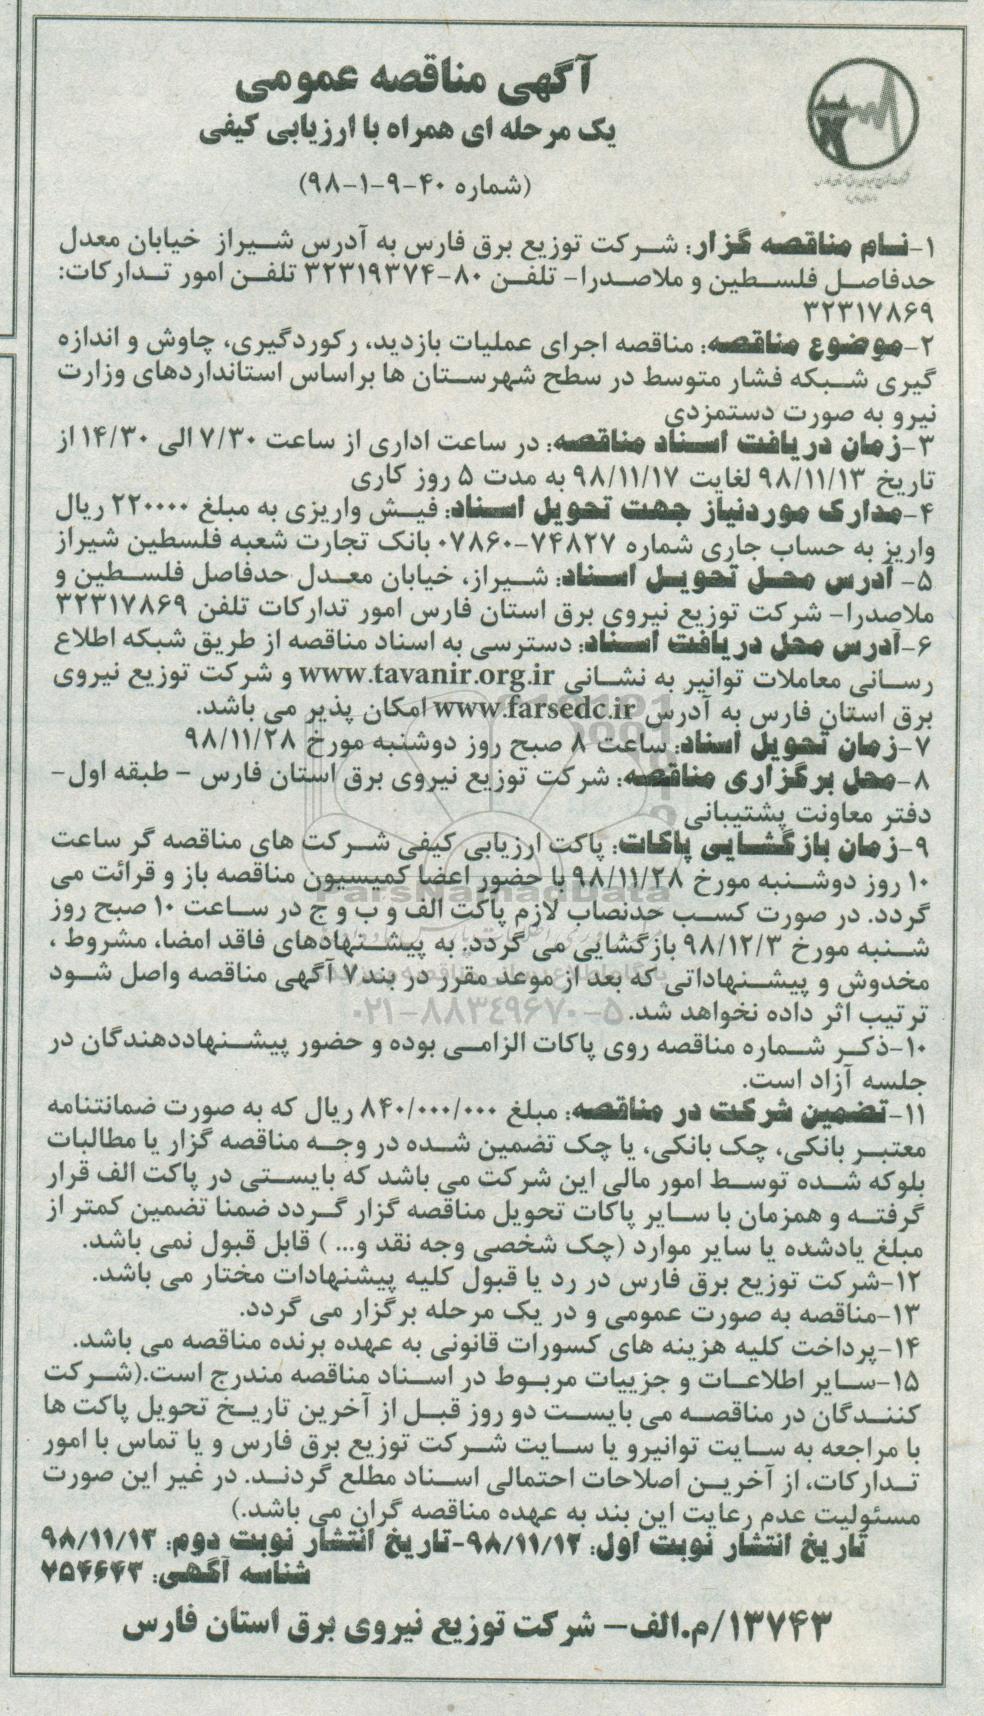 آگهی مناقصه عمومی
یک مرحله ای همراه با ارزیابی کیفی
(شماره ۴۰-۹-۱-۹۸)
۱-نام مناقصه گزار: شرکت توزیع برق فارس به آدرس شیراز خیابان معدل
حدفاصل فلسطین و ملاصدرا- تلفن ۸۰-۳۲۳۱۹۳۷۴ تلفن امور تدارکات:
۳۲۳۱۷۸۶۹
۲-موضوع مناقصه: مناقصه اجرای عملیات بازدید، رکوردگیری، چاوش و اندازه
گیری شبکه فشار متوسط در سطح شهرستان ها براساس استانداردهای وزارت
نیرو به صورت دستمزدی
۳-زمان دریافت اسناد مناقصه: در ساعت اداری از ساعت ۷/۳۰ الی ۱۴/۳۰ از
تاریخ ۹۸/۱۱/۱۳ لغایت ۹۸/۱۱/۱۷ به مدت ۵ روز کاری
۴-مدارک موردنیاز جهت تحویل اسناد: فیش واریزی به مبلغ ۲۲۰۰۰۰ ریال
واریز به حساب جاری شماره ۷۴۸۲۷-۰۷۸۶۰ بانک تجارت شعبه فلسطین شیراز
۵- آدرس محل تحویل اسناد: شیراز، خیابان معدل حدفاصل فلسطین و
ملاصدرا- شرکت توزیع نیروی برق استان فارس امور تدارکات تلفن ۳۲۳۱۷۸۶۹
۶-آدرس محل دریافت اسناد: دسترسی به اسناد مناقصه از طریق شبکه اطلاع
رسانی معاملات توانیر به نشانی www.tavanir.org.ir و شرکت توزیع نیروی
برق استان فارس به آدرس www.farsedc.ir امکان پذیر می باشد.
۷-زمان تحویل اسناد: ساعت ۸ صبح روز دوشنبه مورخ ۹۸/۱۱/۲۸
۸-محل برگزاری مناقصه: شرکت توزیع نیروی برق استان فارس - طبقه اول-
دفتر معاونت پشتیبانی
۹-زمان بازگشایی پاکات: پاکت ارزیابی کیفی شرکت های مناقصه گر ساعت
۱۰ روز دوشنبه مورخ ۹۸/۱۱/۲۸ با حضور اعضا کمیسیون مناقصه باز و قرائت می
گردد. در صورت کسب حدنصاب لازم پاکت الف و ب و ج در ساعت ۱۰ صبح روز
شنبه مورخ ۹۸/۱۲/۳ بازگشایی می گردد. به پیشنهادهای فاقد امضا، مشروط ،
مخدوش و پیشنهاداتی که بعد از موعد مقرر در بند۷ آگهی مناقصه واصل شود
ترتیب اثر داده نخواهد شد.
۱۰-ذکر شماره مناقصه روی پاکات الزامی بوده و حضور پیشنهاددهندگان در
جلسه آزاد است.
۱۱-تضمین شرکت در مناقصه: مبلغ ۸۴۰/۰۰۰/۰۰۰ ریال که به صورت ضمانتنامه
معتبر بانکی، چک بانکی، یا چک تضمین شده در وجه مناقصه گزار یا مطالبات
بلوکه شده توسط امور مالی این شرکت می باشد که بایستی در پاکت الف قرار
گرفته و همزمان با سایر پاکات تحویل مناقصه گزار گردد ضمنا تضمین کمتر از
مبلغ یادشده یا سایر موارد (چک شخصی وجه نقد و... ) قابل قبول نمی باشد.
۱۲-شرکت توزیع برق فارس در رد یا قبول کلیه پیشنهادات مختار می باشد.
۱۳-مناقصه به صورت عمومی و در یک مرحله برگزار می گردد.
۱۴-پرداخت کلیه هزینه های کسورات قانونی به عهده برنده مناقصه می باشد.
۱۵-سایر اطلاعات و جزییات مربوط در اسناد مناقصه مندرج است.(شرکت
کنندگان در مناقصه می بایست دو روز قبل از آخرین تاریخ تحویل پاکت ها
با مراجعه به سایت توانیرو یا سایت شرکت توزیع برق فارس و یا تماس با امور
تدارکات، از آخرین اصلاحات احتمالی اسناد مطلع گردند. در غیر این صورت
مسئولیت عدم رعایت این بند به عهده مناقصه گران می باشد.)
تاریخ انتشار نوبت اول: ۹۸/۱۱/۱۲-تاریخ انتشار نوبت دوم: ۹۸/۱۱/۱۳
شناسه آگهی: ۷۵۴۶۴۳
۱۳۷۴۳/م.الف- شرکت توزیع نیروی برق استان فارس
ParsNamadData
۰۲۱-۸۸۳۴۹۶۷۰-۵